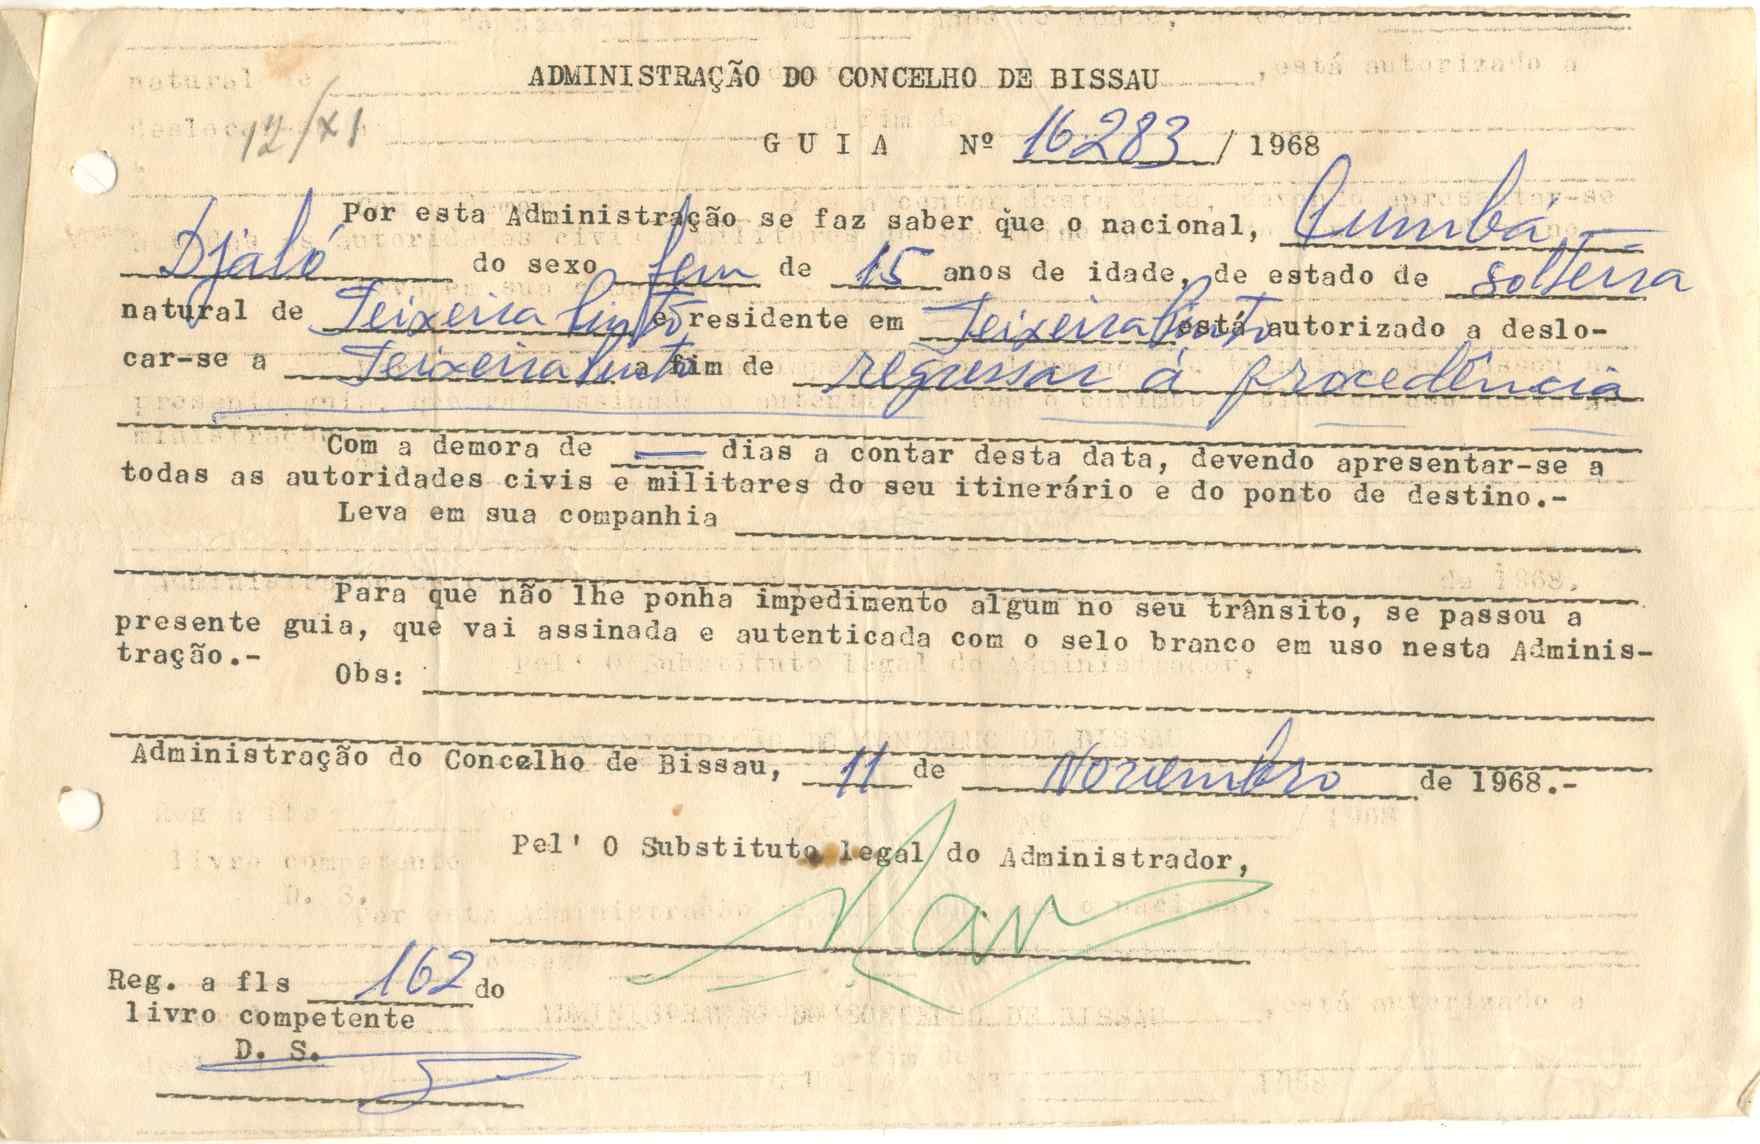 ADMINISTRAÇÃO DO CONCELHO DE BISSAU
12/XI
G U I A Nº 16283 / 1968
Por esta Administração se faz saber que o nacional, Cumbá
Djaló do sexo fem de 15 anos de idade, de estado de solteira
natural de Teixeira Pinto e residente em Teixeira Pinto está autorizado a deslo-
car-se a Teixeira Pinto a fim de regressar à procedência
Com a demora de — dias a contar desta data, devendo apresentar-se a
todas as autoridades civis e militares do seu itinerário e do ponto de destino.-
Leva em sua companhia
Para que não lhe ponha impedimento algum no seu trânsito, se passou a
presente guia, que vai assinada e autenticada com o selo branco em uso nesta Adminis-
tração.-
Obs:
Administração do Concelho de Bissau, 11 de Novembro de 1968.-
Pel' O Substituto legal do Administrador,
Reg. a fls 162 do
livro competente
D. S.